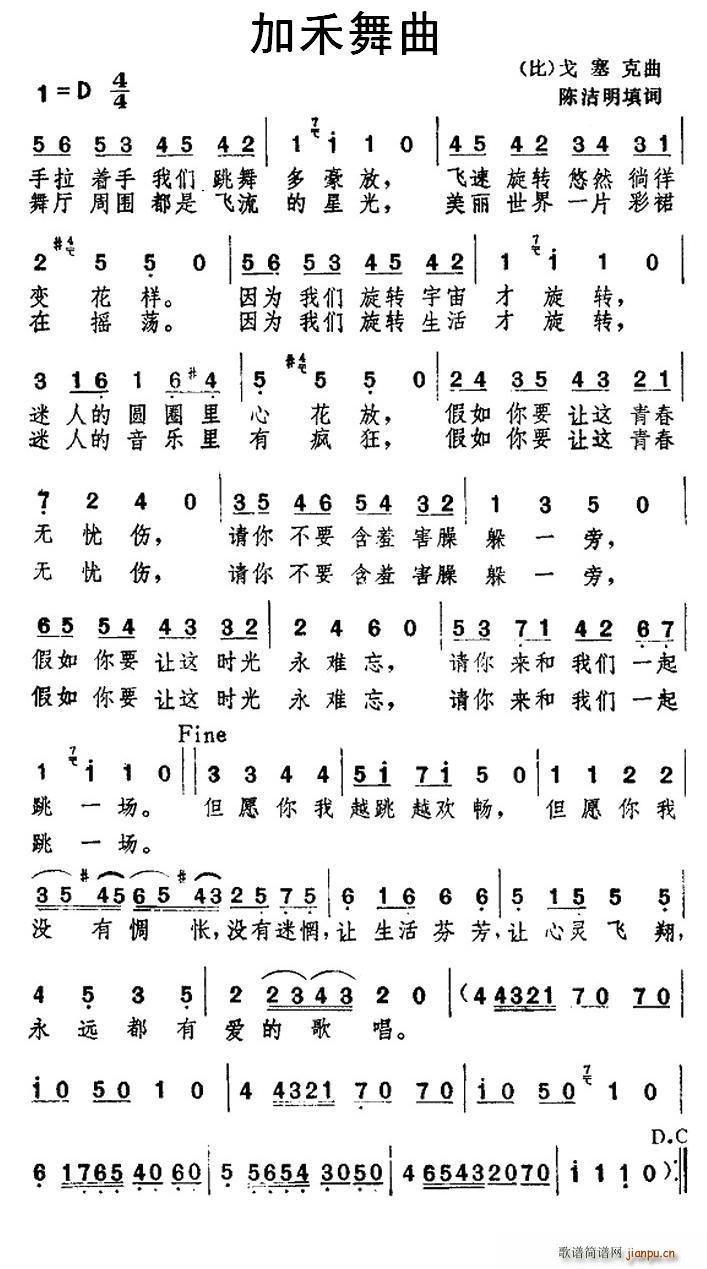 加禾舞曲
(比)戈 塞 克曲
1=D 4/4
陈洁明填词
5 6 5 3 4 5 4 2 | 1 7 i 1 0 | 4 5 4 2 3 4 3 1 |
手拉着手我们跳舞 多豪放， 飞速旋转悠然徜徉
舞厅周围都是飞流 的星光， 美丽世界一片彩裙
2 #4 5 5 0 | 5 6 5 3 4 5 4 2 | 1 7 i 1 0 |
变花样。 因为我们旋转宇宙 才旋转，
在摇荡。 因为我们旋转生活 才旋转，
3 1 6 1 6 #4 | 5 #4 5 5 0 | 2 4 3 5 4 3 2 1 |
迷人的圆圈里 心花放， 假如你要让这青春
迷人的音乐里 有疯狂， 假如你要让这青春
7 2 4 0 | 3 5 4 6 5 4 3 2 | 1 3 5 0 |
无忧伤， 请你不要含羞害臊 躲一旁，
无忧伤， 请你不要含羞害臊 躲一旁，
6 5 5 4 4 3 3 2 | 2 4 6 0 | 5 3 7 1 4 2 6 7 |
假如你要让这时光 永难忘， 请你来和我们一起
假如你要让这时光 永难忘， 请你来和我们一起
Fine
1 7 i 1 0 || 3 3 4 4 | 5 i 7 i 5 0 | 1 1 2 2 |
跳一场。 但愿你我 越跳越欢畅， 但愿你我
跳一场。
3 5 #4 5 6 5 #4 3 | 2 5 7 5 | 6 1 6 6 6 | 5 1 5 5 5 |
没有惆怅，没有迷惘，让生活芬芳，让心灵飞翔，
4 5 3 5 | 2 2 3 4 3 2 0 | (4 4321 70 70 |
永远都有 爱的歌唱。
i 0 5 0 1 0 | 4 4321 70 70 | i 0 5 0 7 1 0 |
D.C
6 1765 40 60 | 5 5654 3050 | 4 65432070 | i 1 1 0) :||
歌谱简谱网
jianpu.cn